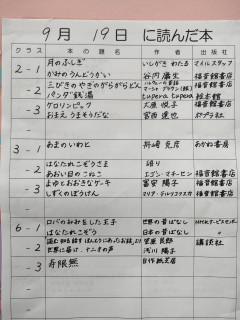 9月 19日 に読んだ本
クラス 本の題名 作者 出版社
2-1 月のふしぎ いしがき わたる マイルスタッフ
かみのうんどうかい 谷内 庸生 福音館書店
-2 三びきのやぎのがらがらどん マーシャ ブラウン(絵) 福音館書店
パンダ銭湯 tupera tupera 絵本館
-3 ケロリンピック 大原 悦子 福音館書店
おまえ うまそうだな 宮西 達也 ポプラ社
3-1 あまのいわと 舟崎 克彦 あかね書房
-2 はなたれこぞうさま 語り
あおい目のこねこ エゴン・マチーセン 福音館書店
-3 よめとおおきなケーキ 福音館書店
しずくのぼうけん マリア・テルリコフスカ 福音館書店
6-1 ロバのみみをした王子 世界の昔ばなし NHKサービスセンター
はなたれこぞう 日本の昔ばなし 〃
-2 講談社
世界に届け、十二才の声 浅川 陽子
-3 寿限無 自作紙芝居